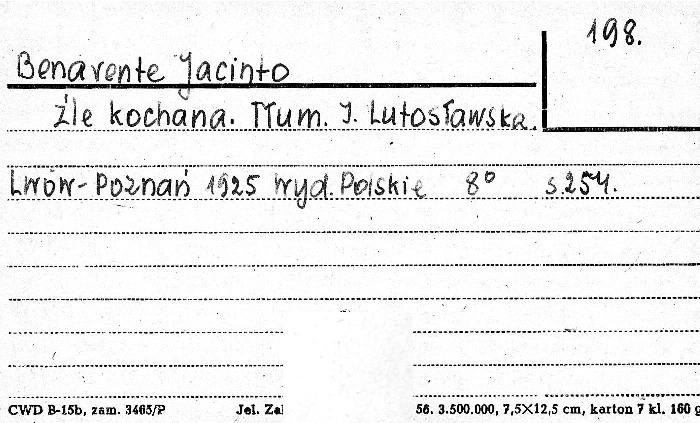 198.
Benavente Jacinto
Źle kochana. Tłum. J. Lutosławska.
Lwów-Poznań 1925 Wyd. Polskie 8° s.254.
CWD B-15b, zam. 3465/P Jel. Zal 56. 3.500.000, 7,5×12,5 cm, karton 7 kl. 160 g